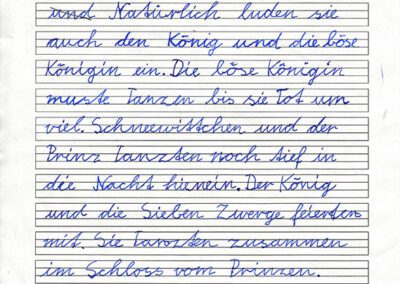 und Natürlich luden sie
auch den König und die böse
Königin ein. Die böse Königin
muste Tanzen bis sie Tot um
viel. Schneewittchen und der
Prinz Tanzten noch tief in
die Nacht hienein. Der König
und die Sieben Zwerge feierten
mit. Sie Tanzten zusammen
im Schloss vom Prinzen.